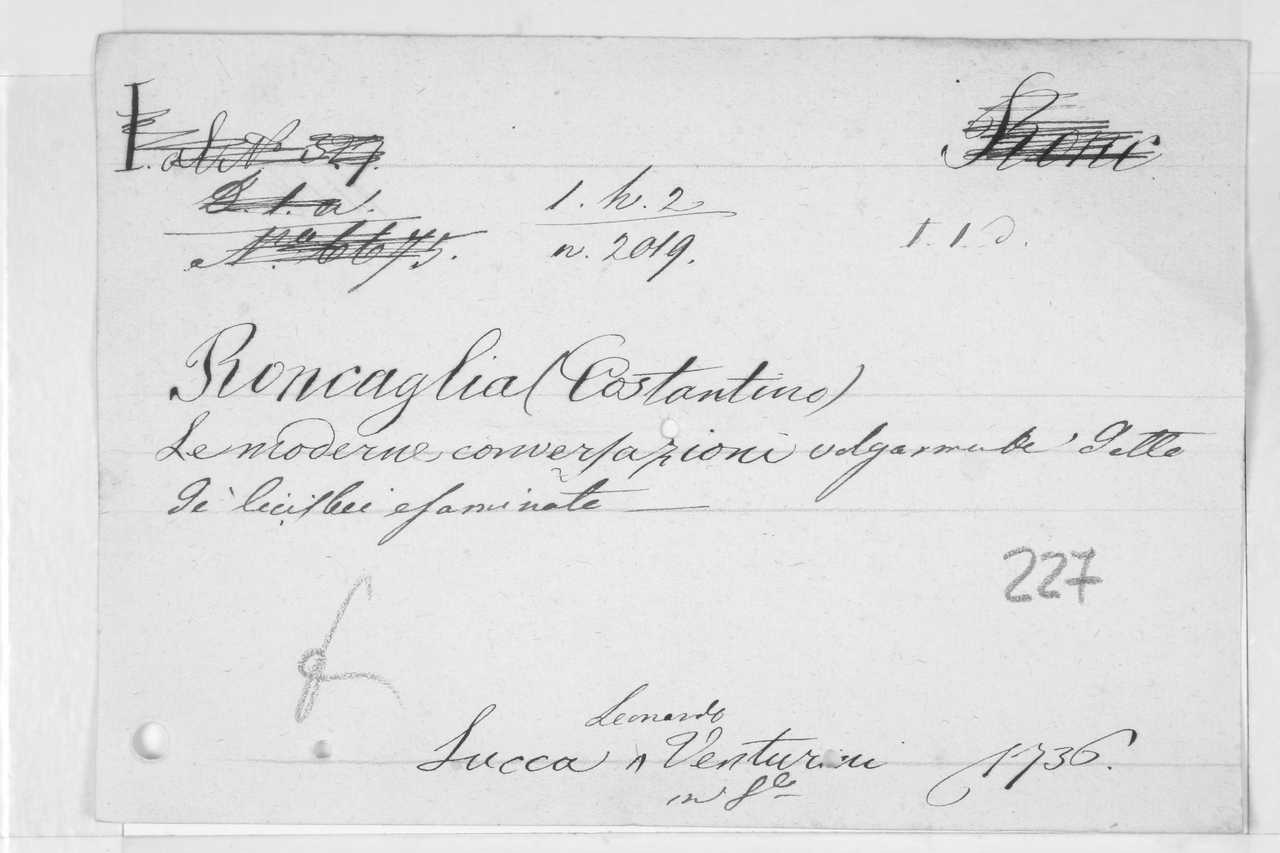 I. al N° 327.
D. 1. a.
N.ro 6675.
1. h. 2
n. 2019.
Ronc
1. 1. d.
Roncaglia (Costantino)
Le moderne conversazioni volgarmente dette
di Cicisbei esaminate
227
Leonardo
Lucca ^ Venturini 1736.
in 8°